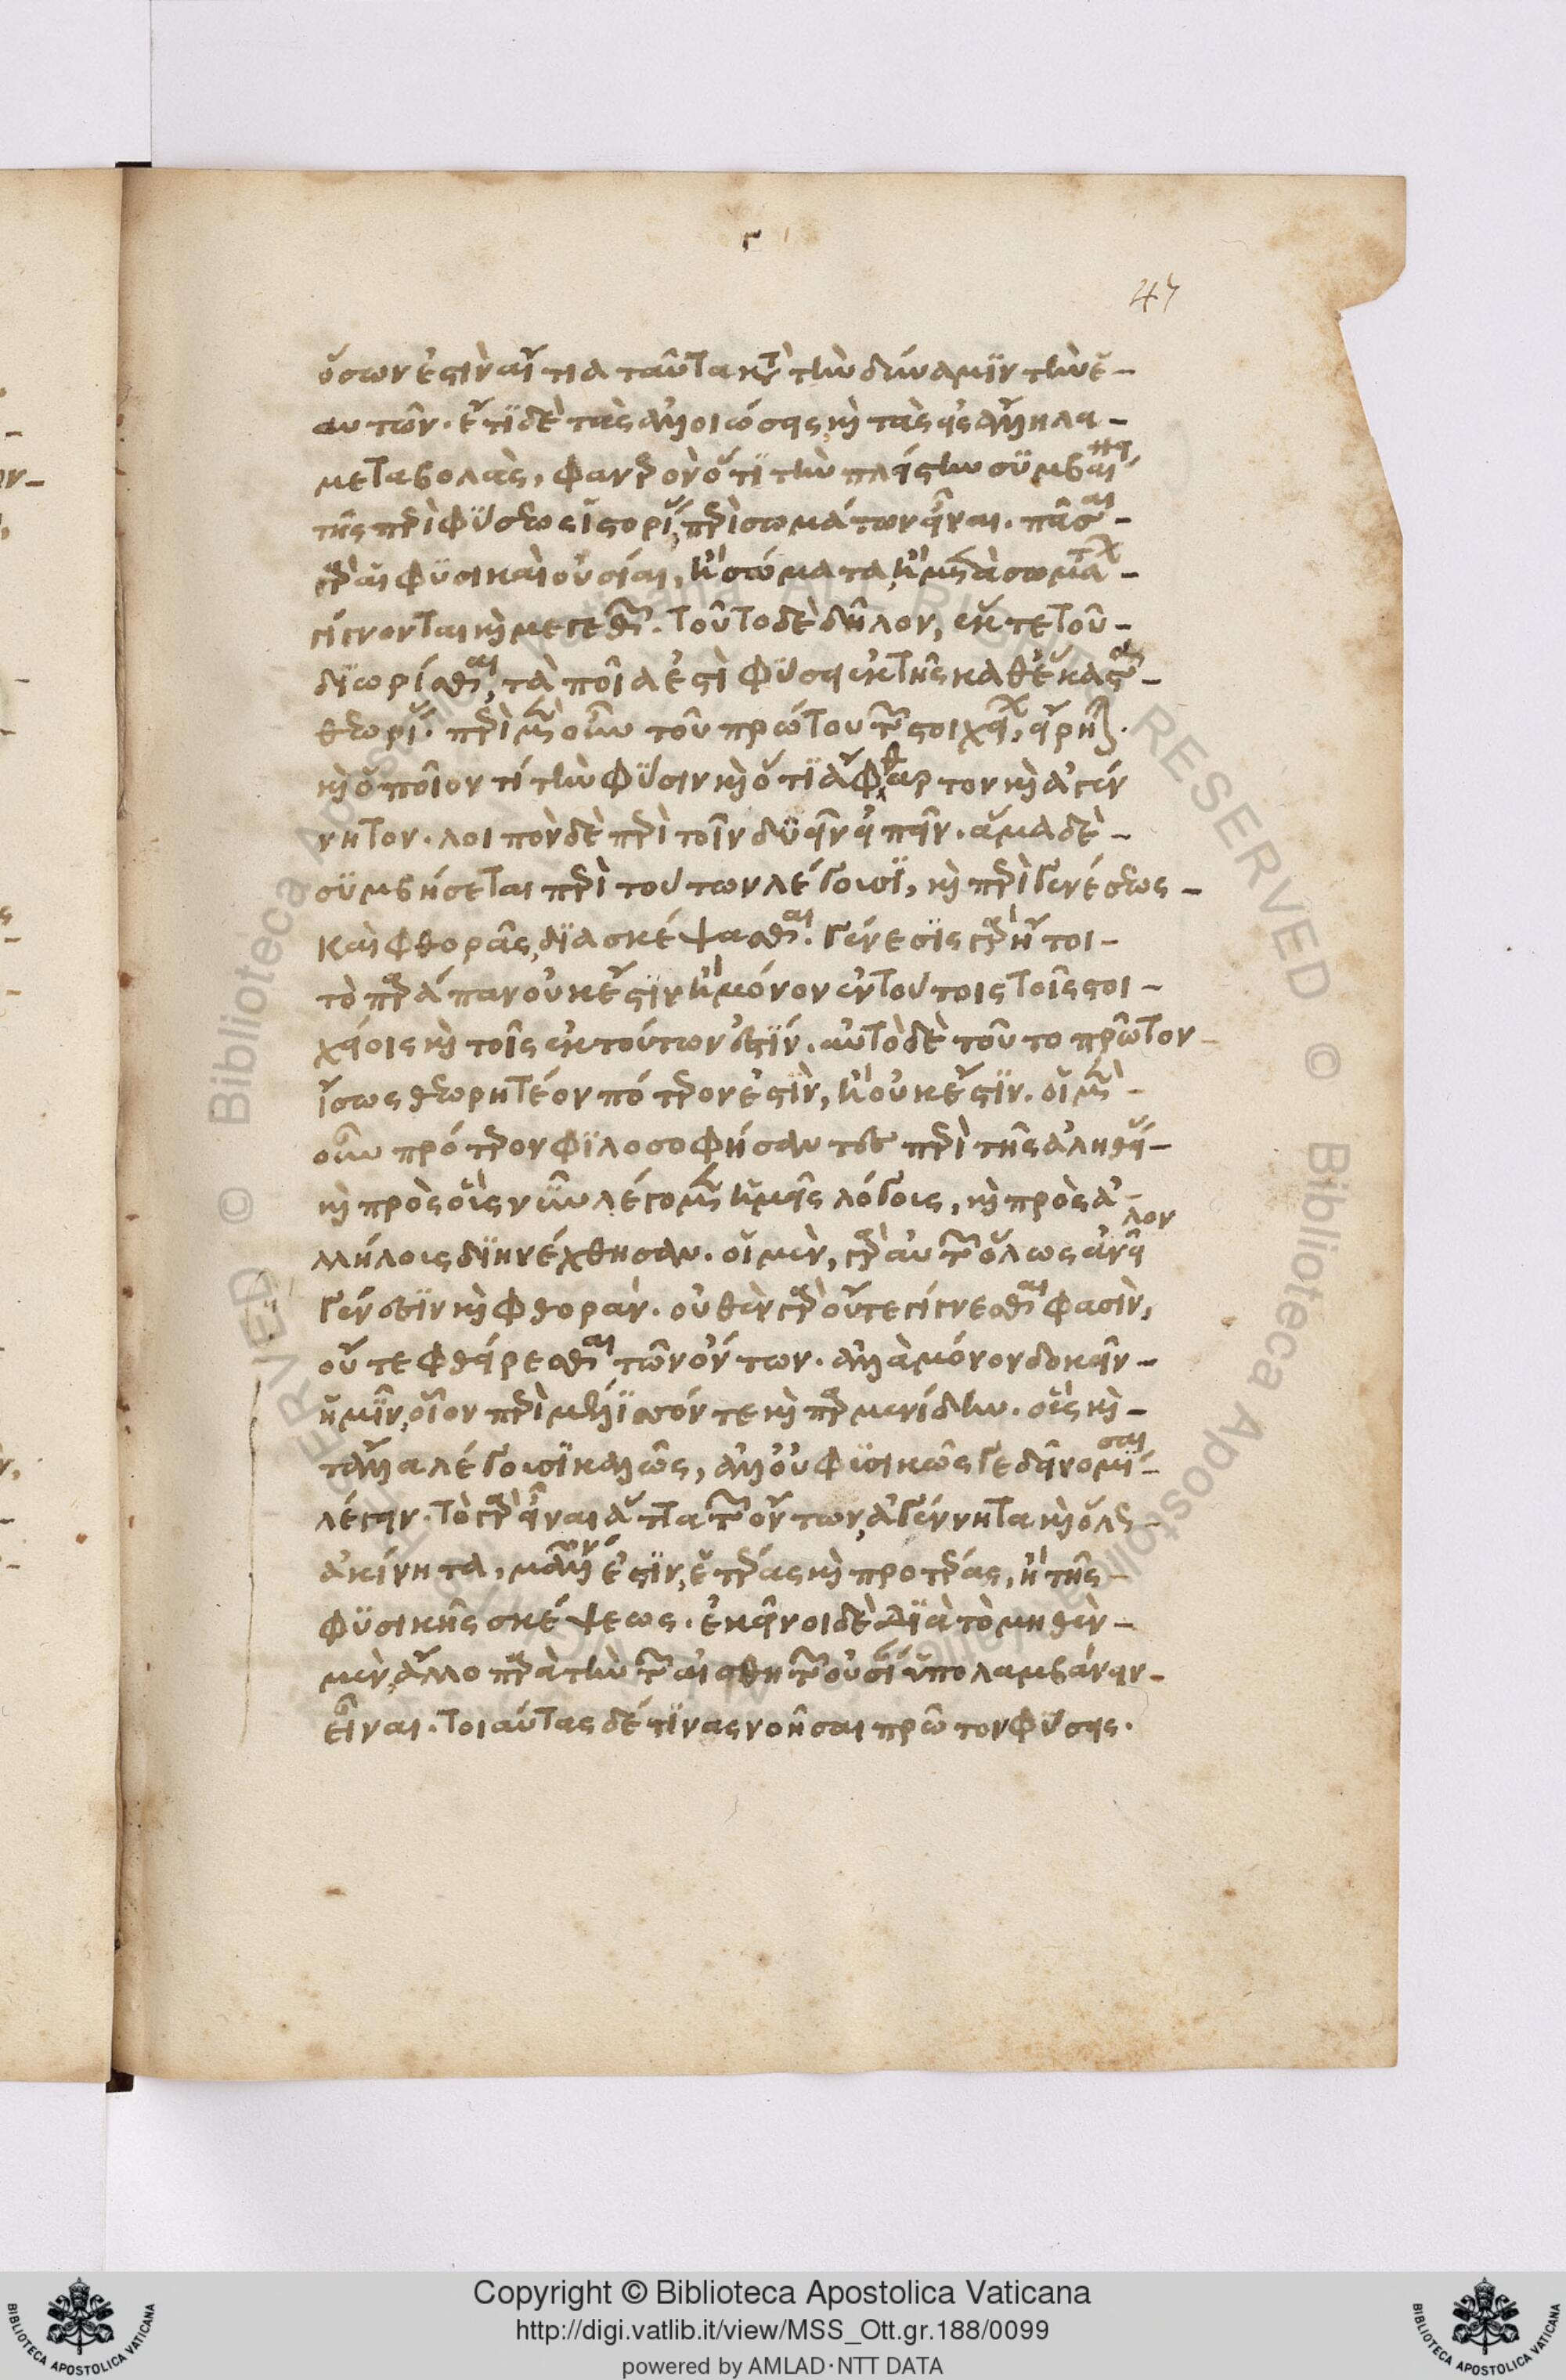 γ
47
ὅσων ἐστὶν αἴτια ταῦτα κατὰ τὴν δύναμιν τὴν ἑ-
αυτῶν. ἔτι δὲ τὰς ἀλλοιώσεις καὶ τὰς εἰς ἄλληλα-
μεταβολὰς, φανερὸν ὅτι τὴν πλείστην συμβαίνει
τῆς περὶ φύσεως ἱστορίας, περὶ σωμάτων εἶναι. πᾶσαι-
γὰρ αἱ φυσικαὶ οὐσίαι, ἢ σώματα, ἢ μετὰ σωμάτων-
γίγνονται καὶ μεγεθῶν. τοῦτο δὲ δῆλον, ἔκ τε τοῦ-
διωρίσθαι, τὰ ποῖά ἐστι φύσει ἐκ τῆς καθ' ἕκαστα-
θεωρίας. περὶ μὲν οὖν τοῦ πρώτου τῶν στοιχείων, εἴρηται.
καὶ ὁποῖόν τι τὴν φύσιν καὶ ὅτι ἄφθαρτον καὶ ἀγέν
νητον. λοιπὸν δὲ περὶ τοῖν δυεῖν εἰπεῖν. ἅμα δὲ-
συμβήσεται περὶ τούτων λέγουσι, καὶ περὶ γενέσεως-
καὶ φθορᾶς, διασκέψασθαι. γένεσις γὰρ ἤτοι-
τὸ παράπαν οὐκ ἔστιν ἢ μόνον ἐν τούτοις τοῖς στοι-
χείοις καὶ τοῖς ἐκ τούτων ἐστίν. αὐτὸ δὲ τοῦτο πρῶτον-
ἴσως θεωρητέον πότερον ἐστὶν, ἢ οὐκ ἔστιν. οἱ μὲν-
οὖν πρότερον φιλοσοφήσαντες περὶ τῆς ἀληθείας-
καὶ πρὸς οὓς νῦν λέγομεν ἡμεῖς λόγους, καὶ πρὸς ἀ-
λλήλους διηνέχθησαν. οἱ μὲν, γὰρ αὐτῶν ὅλως ἀνεῖλον
γένεσιν καὶ φθοράν. οὐθὲν γὰρ οὔτε γίγνεσθαι φασὶν,
οὔτε φθείρεσθαι τῶν ὄντων. ἀλλὰ μόνον δοκεῖν-
ἡμῖν, οἷον περὶ μέλισσόν τε καὶ παρμενίδην. οὓς καὶ-
τἄλλα λέγουσι καλῶς, ἀλλ' οὐ φυσικῶς γε δεῖ νομίσαι-
λέγειν. τὸ γὰρ εἶναι ἄττα τῶν ὄντων, ἀγέννητα καὶ ὅλως-
ἀκίνητα, μᾶλλόν ἐστιν, ἑτέρας καὶ προτέρας, ἢ τῆς-
φυσικῆς σκέψεως. ἐκεῖνοι δὲ διὰ τὸ μηθὲν-
μὲν, ἄλλο παρὰ τὴν τῶν αἰσθητῶν οὐσίαν ὑπολαμβάνειν-
εἶναι. τοιαύτας δέ τινας νοῆσαι πρῶτον φύσεις.
Copyright © Biblioteca Apostolica Vaticana
http://digi.vatlib.it/view/MSS_Ott.gr.188/0099
powered by AMLAD·NTT DATA
BIBLIOTECA APOSTOLICA VATICANA
BIBLIOTECA APOSTOLICA VATICANA